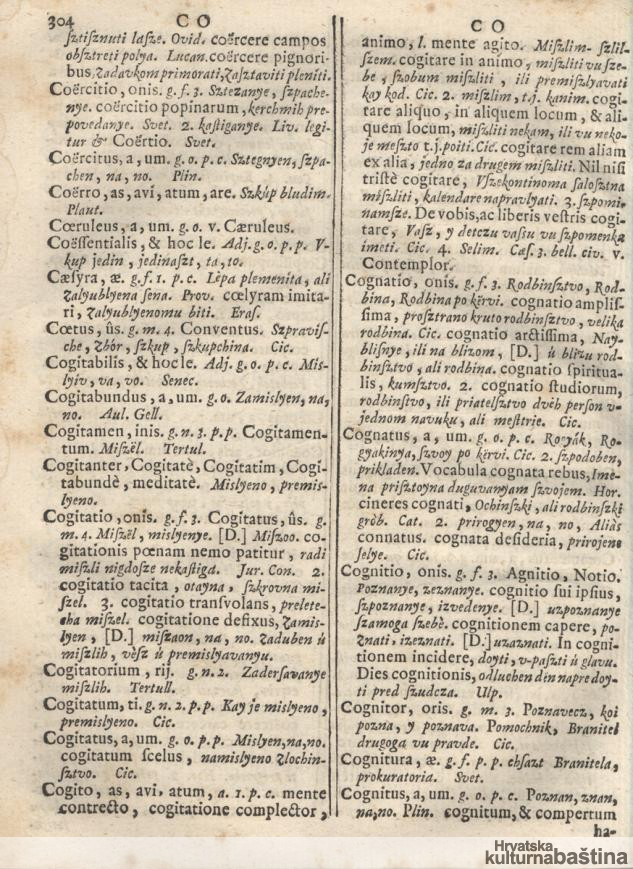 304 C O
sztisznuti lasze. Ovid. coërcere campos
obsztreti polya. Lucan. coërcere pignori-
bus, zadavkom primorati, zasztaviti pleniti.
Coërcitio, onis. g. f. 3. Sztezanye, szpache-
nye. coërcitio popinarum, kerchmih pre-
povedanye. Svet. 2. kastiganye. Liv. legi-
tur & Coërtio. Svet.
Coërcitus, a, um. g. o. p. c. Sztegnyen, szpa-
chen, na, no. Plin.
Coërro, as, avi, atum, are. Szkúp bludim.
Plaut.
Cœruleus, a, um. g. o. v. Cæruleus.
Coëssentialis, & hoc le. Adj. g. o. p. p. V-
kup jedin, jedinaszt, ta, to.
Cœsyra, æ. g. f. 1. p. c. Lêpa plemenita, ali
zalyublyena sena. Prov. cœsyram imita-
ri, zalyublyenomu biti. Eras.
Cœtus, ûs. g. m. 4. Conventus. Szpravis-
che, zbór, szkup, szkupchina. Cic.
Cogitabilis, & hoc le. Adj. g. o. p. c. Mis-
lyiv, va, vo. Senec.
Cogitabundus, a, um. g. o. Zamislyen, na,
no. Aul. Gell.
Cogitamen, inis. g. n. 3. p. p. Cogitamen-
tum. Miszêl. Tertul.
Cogitanter, Cogitatè, Cogitatim, Cogi-
tabundè, meditatè. Mislyeno, premis-
lyeno.
Cogitatio, onis. g. f. 3. Cogitatus, ûs. g.
m. 4. Miszêl, mislyenye. [D.] Miszoo. co-
gitationis pœnam nemo patitur, radi
miszli nigdosze nekastiga. Jur. Con. 2.
cogitatio tacita, otayna, szkrovna mi-
szel. 3. cogitatio transvolans, prelete-
cha miszel. cogitatione defixus, zamis-
lyen, [D.] miszaon, na, no. zaduben ú
miszlih, vèsz ú premislyavanyu.
Cogitatorium, rij. g. n. 2. Zadersavanye
miszlih. Tertull.
Cogitatum, ti. g. n. 2. p. p. Kay je mislyeno,
premislyeno. Cic.
Cogitatus, a, um. g. o. p. p. Mislyen, na, no.
cogitatum scelus, namislyeno zlochin-
sztvo. Cic.
Cogito, as, avi, atum, a. 1. p. c. mente
contrecto, cogitatione complector,
C O
animo, l. mente agito. Miszlim- szlil-
szem. cogitare in animo, miszliti vu sze-
be, szobum miszliti, ili premiszlyavati
kay kod. Cic. 2. miszlim, t.j. kanim. cogi-
tare aliquo, in aliquem locum, & ali-
quem locum, miszliti nekam, ili vu neko-
je meszto t.j. poiti. Cic. cogitare rem aliam
ex alia, jedno za drugem miszliti. Nil nisi
tristè cogitare, Vszekontinoma salosztna
miszliti, kalendare napravlyati. 3. szpomi-
namsze. De vobis, ac liberis vestris cogi-
tare, Vasz, y detczu vassu vu szpomenka
imeti. Cic. 4. Selim. Cæs. 3. bell. civ. v.
Contemplor.
Cognatio, onis. g. f. 3. Rodbinsztvo, Rod-
bina, Rodbina po kèrvi. cognatio amplis-
sima, prosztrano kruto rodbinsztvo, velika
rodbina. Cic. cognatio arctissima, Nay-
blisnye, ili na blizom, [D.] ú blizu rod-
binsztvo, ali rodbina. cognatio spiritua-
lis, kumsztvo. 2. cognatio studiorum,
rodbinstvo, ili priatelsztvo dvêh person v-
jednom navuku, ali mestrie. Cic.
Cognatus, a, um. g. o. p. c. Royák, Ro-
gyakinya, szvoy po kèrvi. Cic. 2. szpodoben,
prikladen. Vocabula cognata rebus, Ime-
na prisztoyna duguvanyam szvojem. Hor.
cineres cognati, Ochinszki, ali rodbinszki
gròb. Cat. 2. prirogyen, na, no, Aliàs
connatus. cognata desideria, prirojene
selye. Cic.
Cognitio, onis. g. f. 3. Agnitio, Notio.
Poznanye, zeznanye. cognitio sui ipsius,
szpoznanye, izvedenye. [D.] uzpoznanye
szamoga szebè. cognitionem capere, po-
znati, izeznati. [D.] uzaznati. In cogni-
tionem incidere, doyti, v-paszti ú glavu.
Dies cognitionis, odluchen din napre doy-
ti pred szudcza. Ulp.
Cognitor, oris. g. m. 3. Poznavecz, koi
pozna, y poznava. Pomochnik, Branitel
drugoga vu pravde. Cic.
Cognitura, æ. g. f. p. p. chsazt Branitela,
prokuratoria. Svet.
Cognitus, a, um. g. o. p. c. Poznan, znan,
na, no. Plin. cognitum, & compertum
ha-
Hrvatska
kulturnabaština